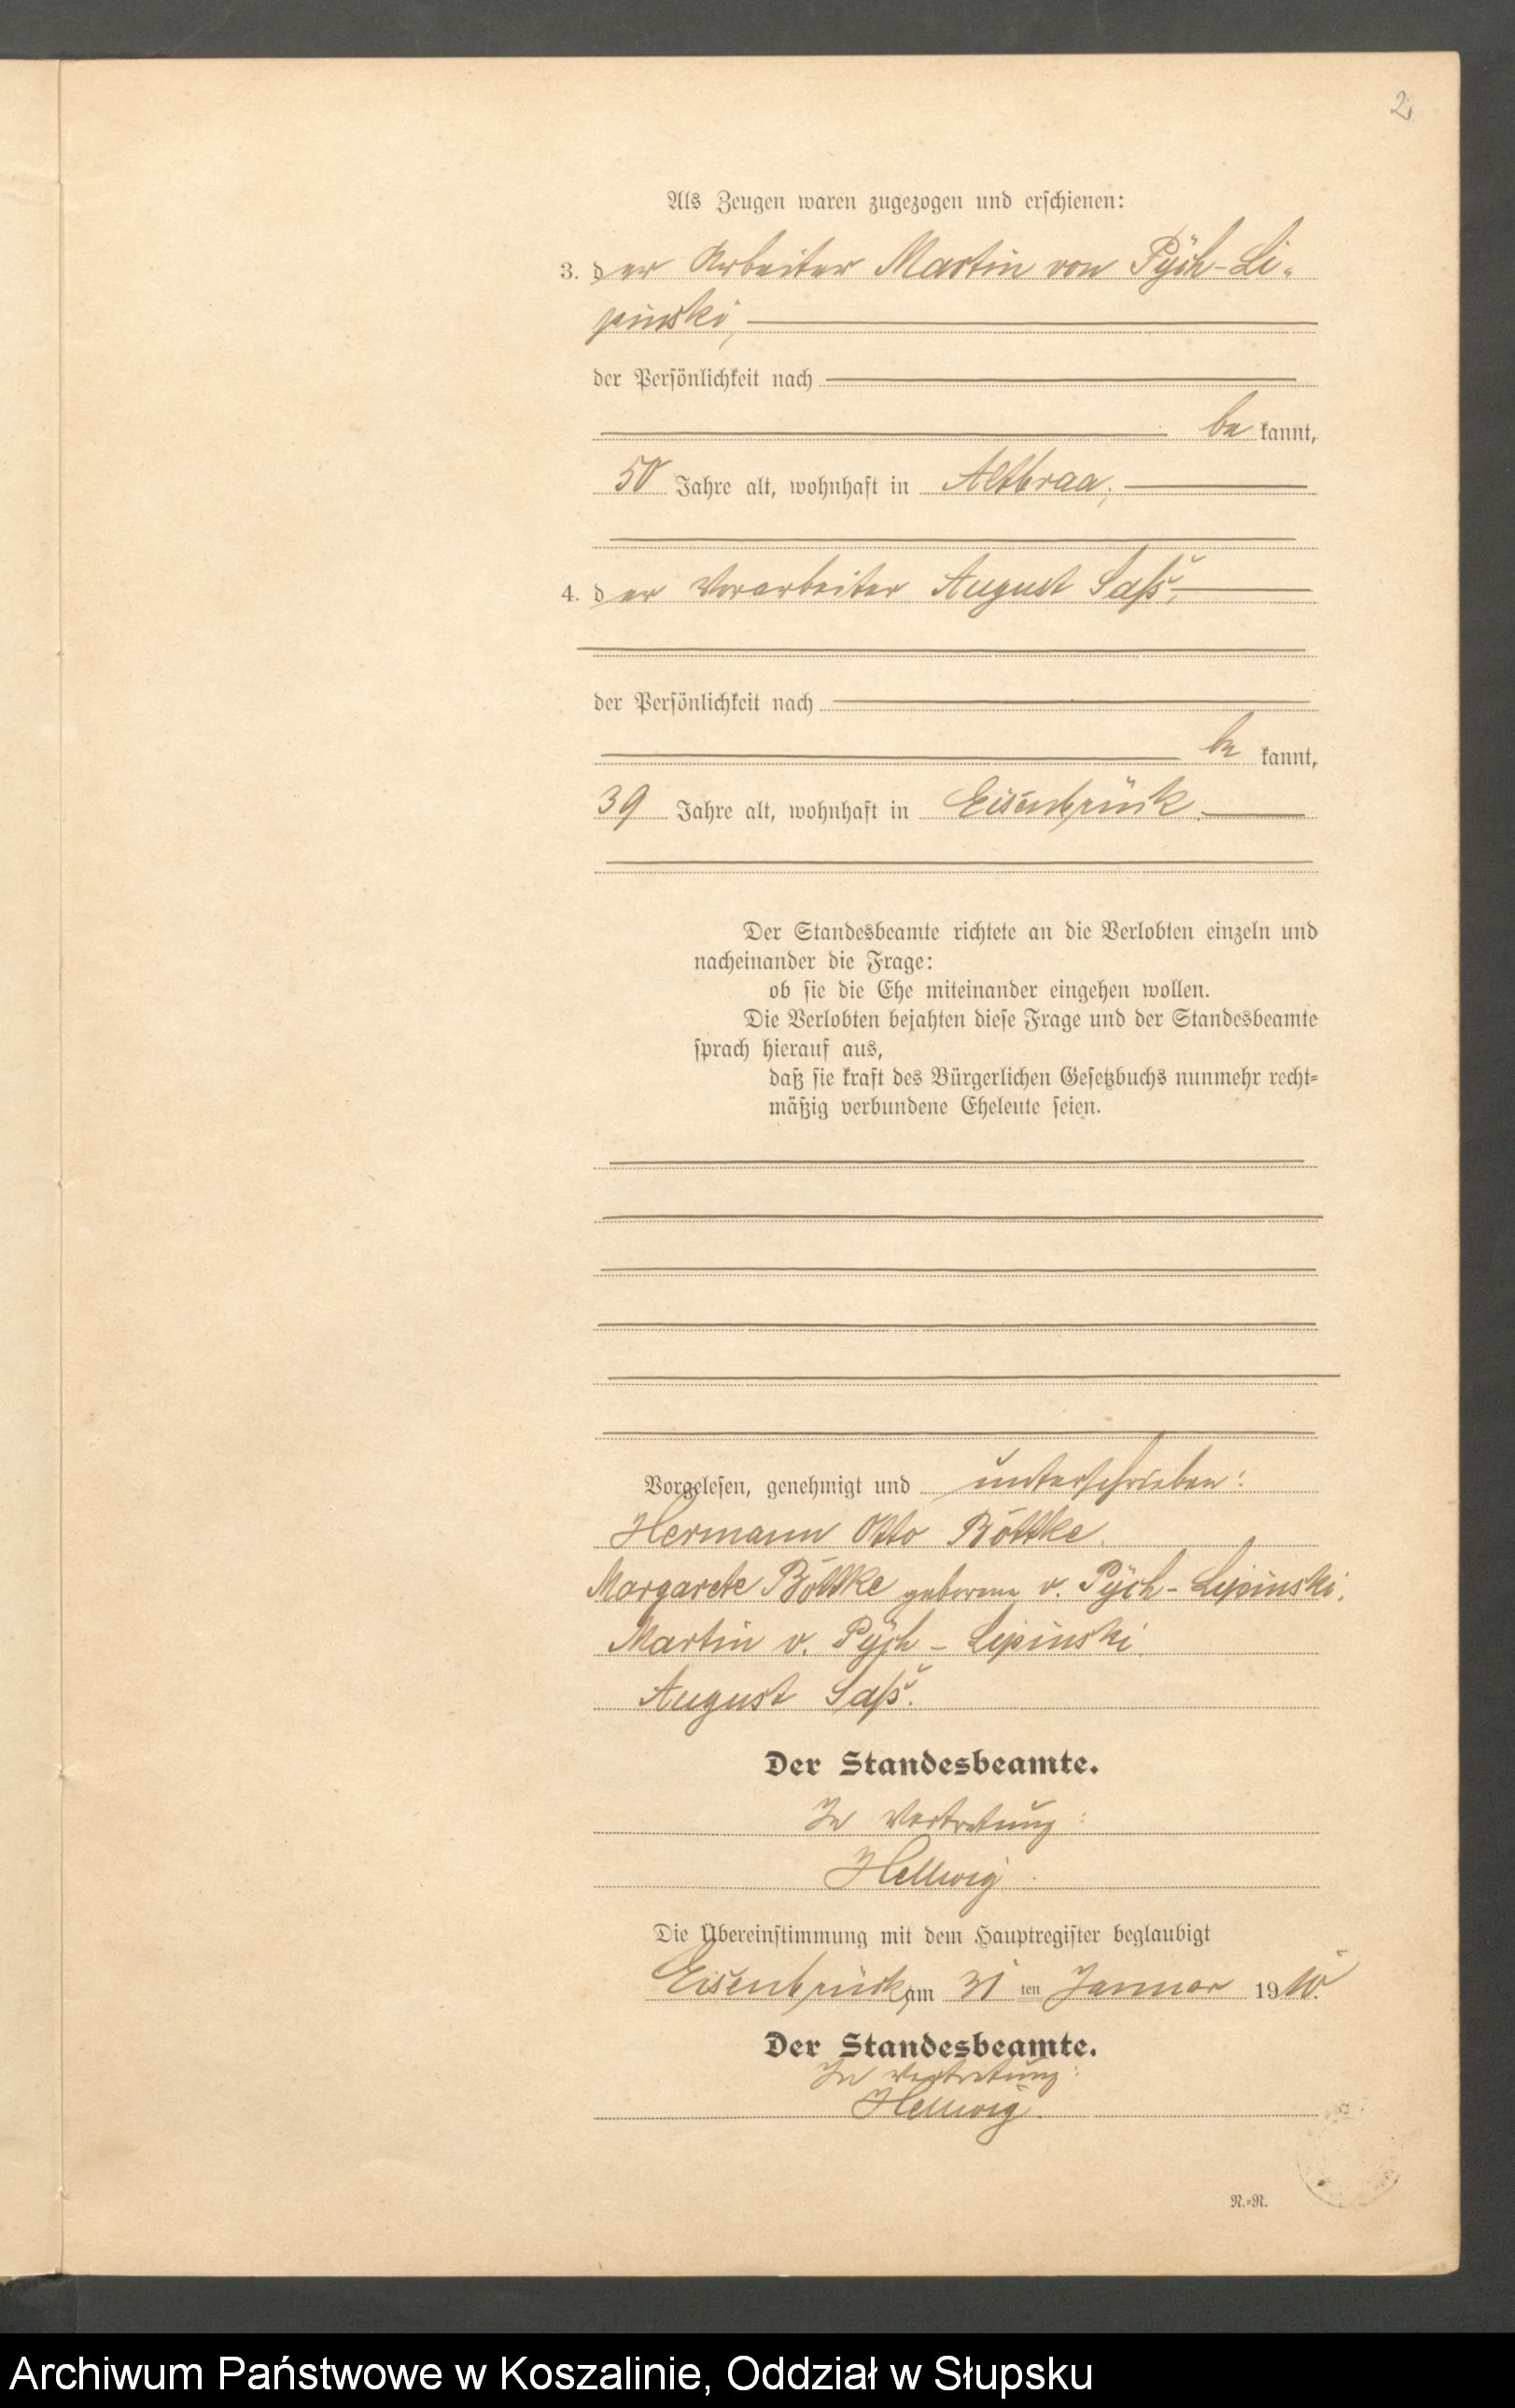 2
Als Zeugen waren zugezogen und erschienen:
3. der Arbeiter Martin von Pÿch-Li-
pinski,
der Persönlichkeit nach
bekannt,
50 Jahre alt, wohnhaft in Altbraa;
4. der Vorarbeiter August Saß,
der Persönlichkeit nach
bekannt,
39 Jahre alt, wohnhaft in Eisenbrück.
Der Standesbeamte richtete an die Verlobten einzeln und
nacheinander die Frage:
ob sie die Ehe miteinander eingehen wollen.
Die Verlobten bejahten diese Frage und der Standesbeamte
sprach hierauf aus,
daß sie kraft des Bürgerlichen Gesetzbuchs nunmehr recht-
mäßig verbundene Eheleute seien.
Vorgelesen, genehmigt und unterschrieben:
Hermann Otto Böttke.
Margarete Böttke geborene v. Pÿch-Lipinski.
Martin v. Pÿch-Lipinski.
August Saß.
Der Standesbeamte.
In Vertretung:
Hellwig.
Die Übereinstimmung mit dem Hauptregister beglaubigt
Eisenbrück, am 31 ten Januar 1910.
Der Standesbeamte.
In Vertretung:
Hellwig.
N.-R.
Archiwum Państwowe w Koszalinie, Oddział w Słupsku